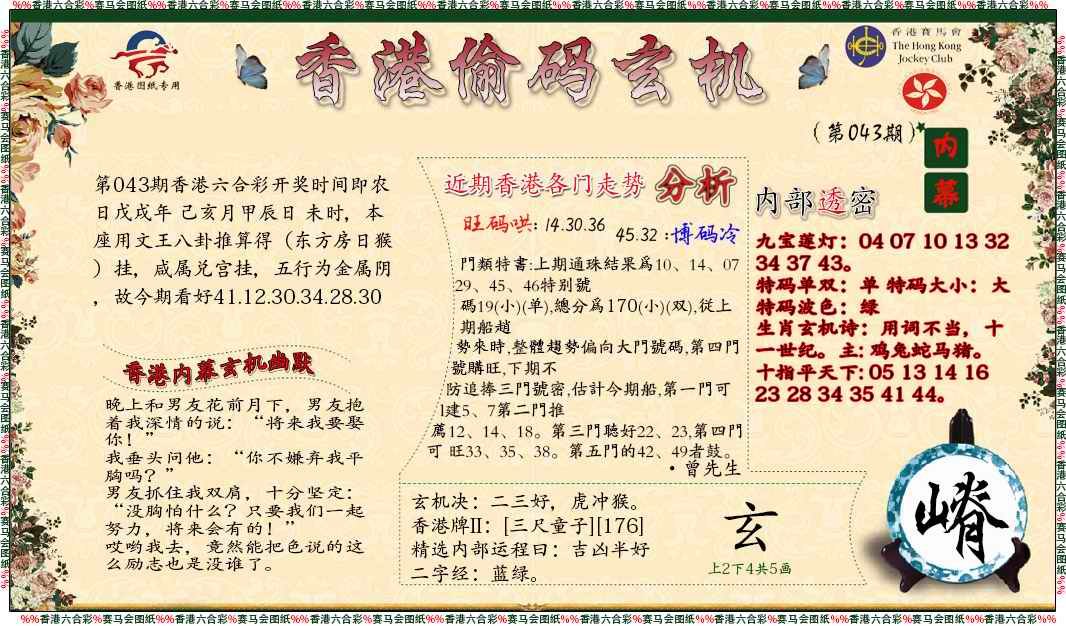 %%香港六合彩%赛马会图纸%%香港六合彩%赛马会图纸%%香港六合彩%赛马会图纸%%香港六合彩%赛马会图纸%%香港六合彩%赛马会图纸%%香港六合彩%赛马会图纸%%香港六合彩%%
香港图纸专用
香港偷码玄机
香港賽馬會
The Hong Kong
Jockey Club
(第043期)
内幕
第043期香港六合彩开奖时间即农
日戊戌年 己亥月甲辰日 未时，本
座用文王八卦推算得（东方房日猴
）挂，咸属兑宫挂，五行为金属阴
，故今期看好41.12.30.34.28.30
香港内幕玄机幽默
晚上和男友花前月下，男友抱
着我深情的说：“将来我要娶
你！”
我垂头问他：“你不嫌弃我平
胸吗？”
男友抓住我双肩，十分坚定：
“没胸怕什么？只要我们一起
努力，将来会有的！”
哎哟我去，竟然能把色说的这
么励志也是没谁了。
近期香港各门走势 分析
旺码哄: 14.30.36
45.32 :博码冷
門類特書:上期通珠結果爲10、14、07
29、45、46特别號
碼19(小)(单),總分爲170(小)(双),從上
期船趟
勢來時,整體趨勢偏向大門號碼,第四門
號購旺,下期不
防追捧三門號密,估計今期船,第一門可
1建5、7第二門推
薦12、14、18。第三門聽好22、23,第四門
可 旺33、35、38。第五門的42、49者鼓。
·曾先生
内部透密
九宝莲灯：04 07 10 13 32
34 37 43。
特码单双：单 特码大小：大
特码波色：绿
生肖玄机诗：用词不当，十
一世纪。主: 鸡兔蛇马猪。
十指平天下: 05 13 14 16
23 28 34 35 41 44。
玄机决：二三好，虎冲猴。
香港牌II：[三尺童子][176]
精选内部运程日：吉凶半好
二字经：蓝绿。
玄
上2下4共5画
%%香港六合彩%赛马会图纸%%香港六合彩%赛马会图纸%%香港六合彩%赛马会图纸%%香港六合彩%赛马会图纸%%香港六合彩%赛马会图纸%%香港六合彩%赛马会图纸%%香港六合彩%%